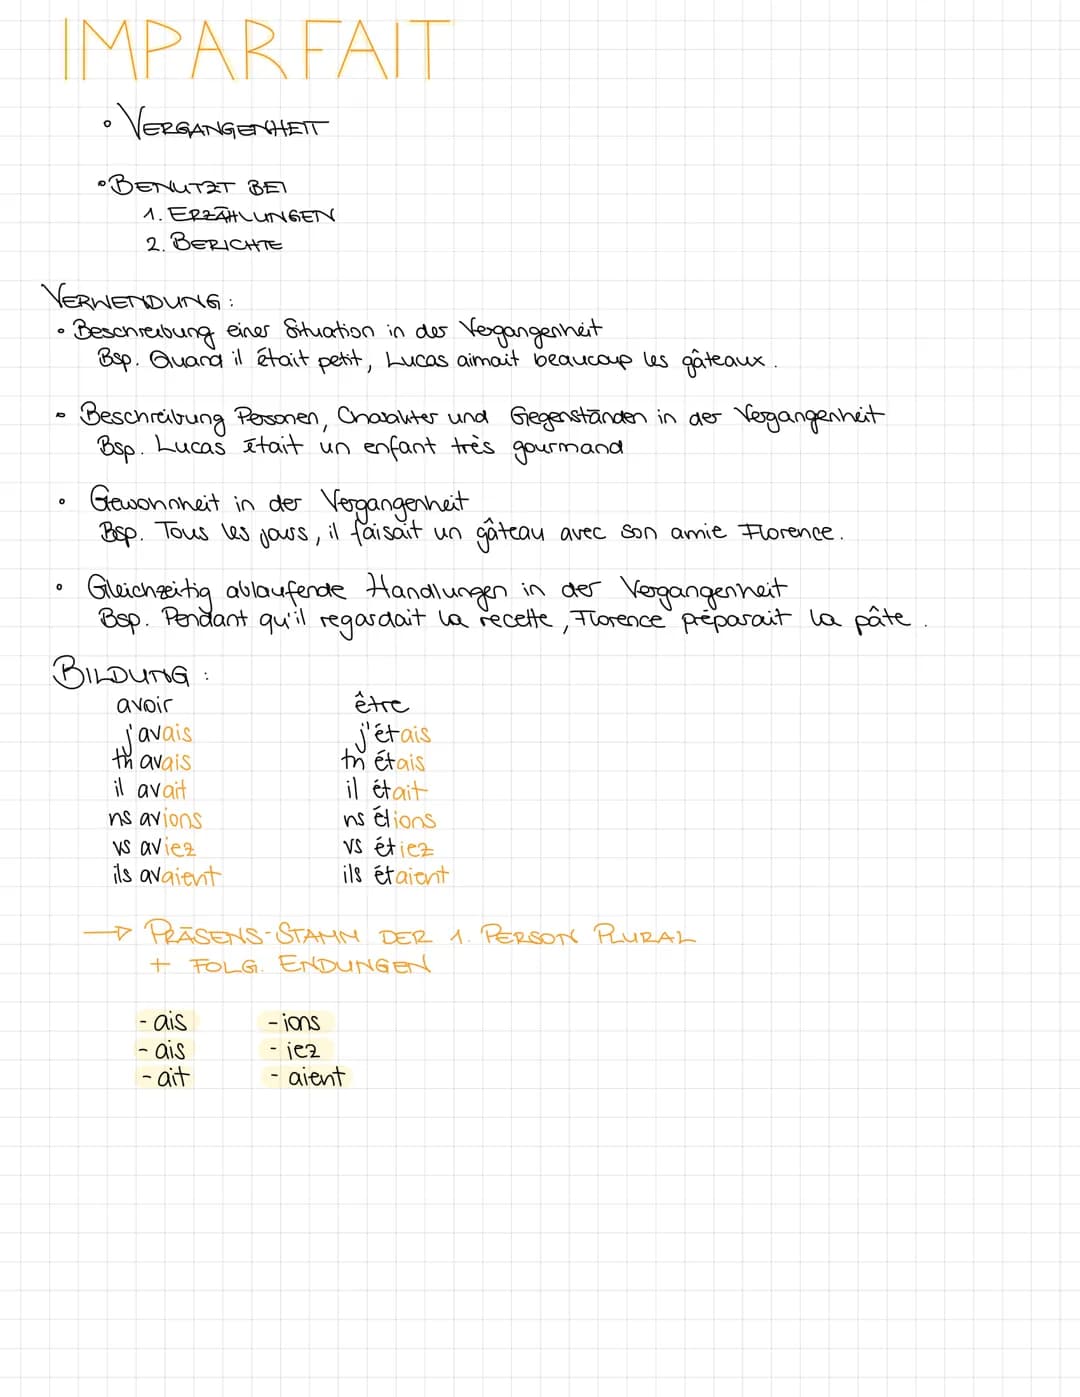 IMPARFAIT
• VERGANGENHEIT
• BENUTZT BEI
1. ERZÄHLUNGEN
2. BERICHTE
VERWENDUNG:
• Beschreibung einer Situation in der Vergangenheit
Bsp. Quand il était petit, Lucas aimait beaucoup les gâteaux.
• Beschreibung Personen, Charakter und Gegenständen in der Vergangenheit
Bsp. Lucas était un enfant très gourmand
• Gewohnheit in der Vergangenheit
Bsp. Tous les jours, il faisait un gâteau avec son amie Florence.
• Gleichzeitig ablaufende Handlungen in der Vergangenheit
Bsp. Pendant qu'il regardait la recette, Florence préparait la pâte.
BILDUNG:
avoir être
j'avais j'étais
tu avais tu étais
il avait il était
ns avions ns étions
vs aviez vs étiez
ils avaient ils étaient
→ PRÄSENS-STAMM DER 1. PERSON PLURAL
+ FOLG. ENDUNGEN
- ais - ions
- ais - iez
- ait - aient